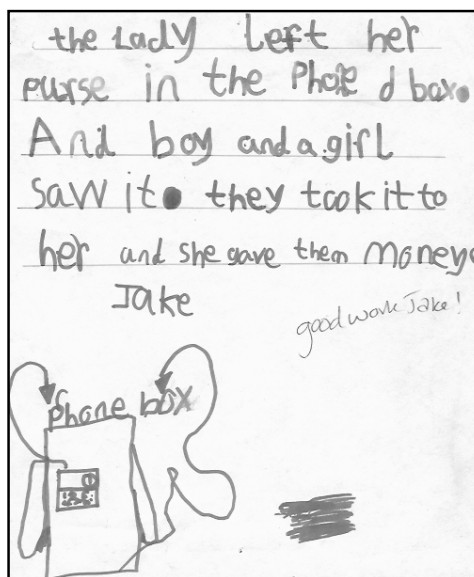 the Lady Left her
purse in the Phone d box.
And boy and a girl
saw it. they took it to
her and she gave them money.
Jake
good work Jake!
phone box